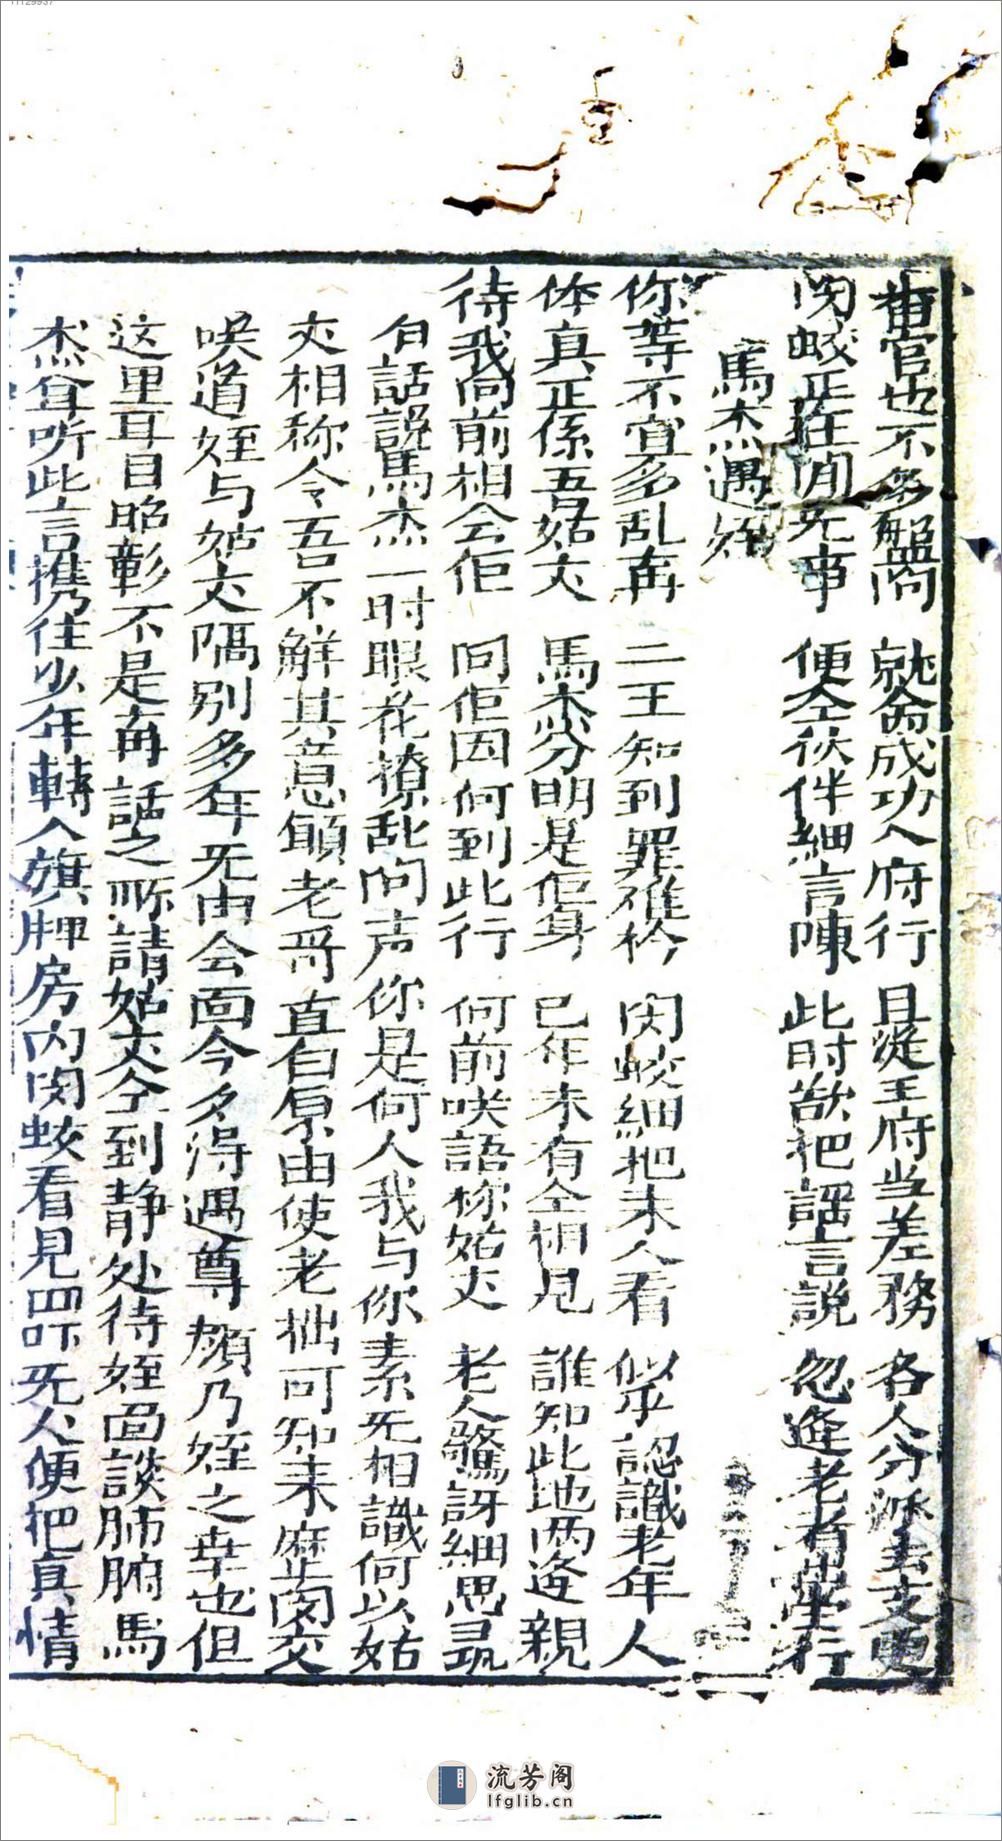 11129937
曹官也不多盤問　就命成功入府行　且從王府当差務　各人分派去支更
閔蛟正在閒旡事　便仝伙伴細言陳　此时欲把謡言説　忽逢老者出堂行
馬杰遇姪
你等不宜多乱再　二王知到罪难衿　閔蛟細把来人看　似乎認識老年人
体真正係吾姑丈　馬杰分明是佢身　已年未有仝相见　誰知此地两逢親
待我向前相会佢　问佢因何到此行　何前咲語称姑丈　老人驚訝細思尋
有話説馬杰一时眼花撩乱问声你是何人我与你素旡相識何以姑
丈相称令吾不解其意願老哥直白原由使老拙可知来庶閔交
咲道姪与姑丈隔别多年旡由会面今夕得遇尊顔乃姪之幸也但
这里耳目昭彰不是再話之所請姑丈仝到静处待姪面談肺腑馬
杰耸听此言携住少年轉入旗牌房内閔蛟看見四吓旡人便把真情
流芳阁
lfglib.cn